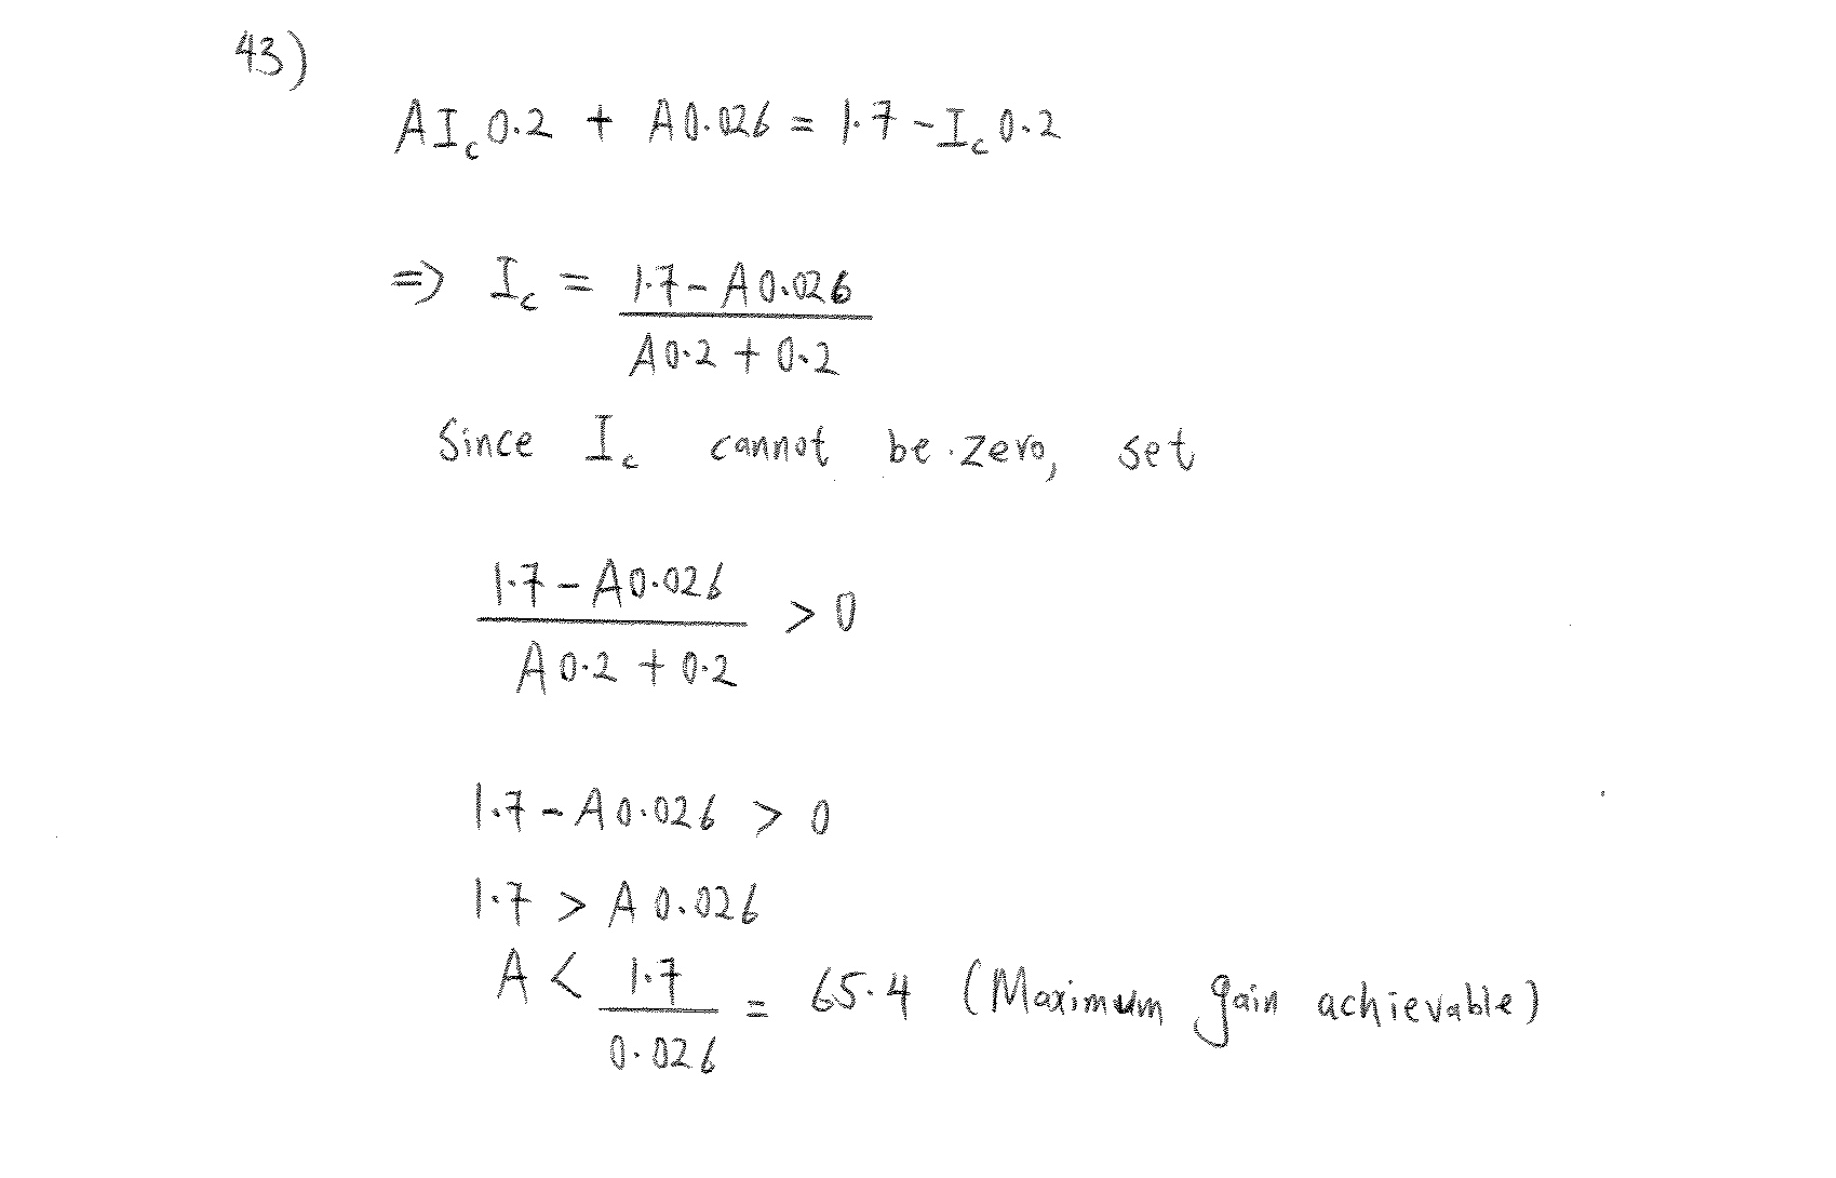 43)
AI_c 0.2 + A0.026 = 1.7 - I_c 0.2
=> I_c = (1.7 - A0.026) / (A0.2 + 0.2)
Since I_c cannot be zero, set
(1.7 - A0.026) / (A0.2 + 0.2) > 0
1.7 - A0.026 > 0
1.7 > A0.026
A < 1.7 / 0.026 = 65.4 (Maximum gain achievable)